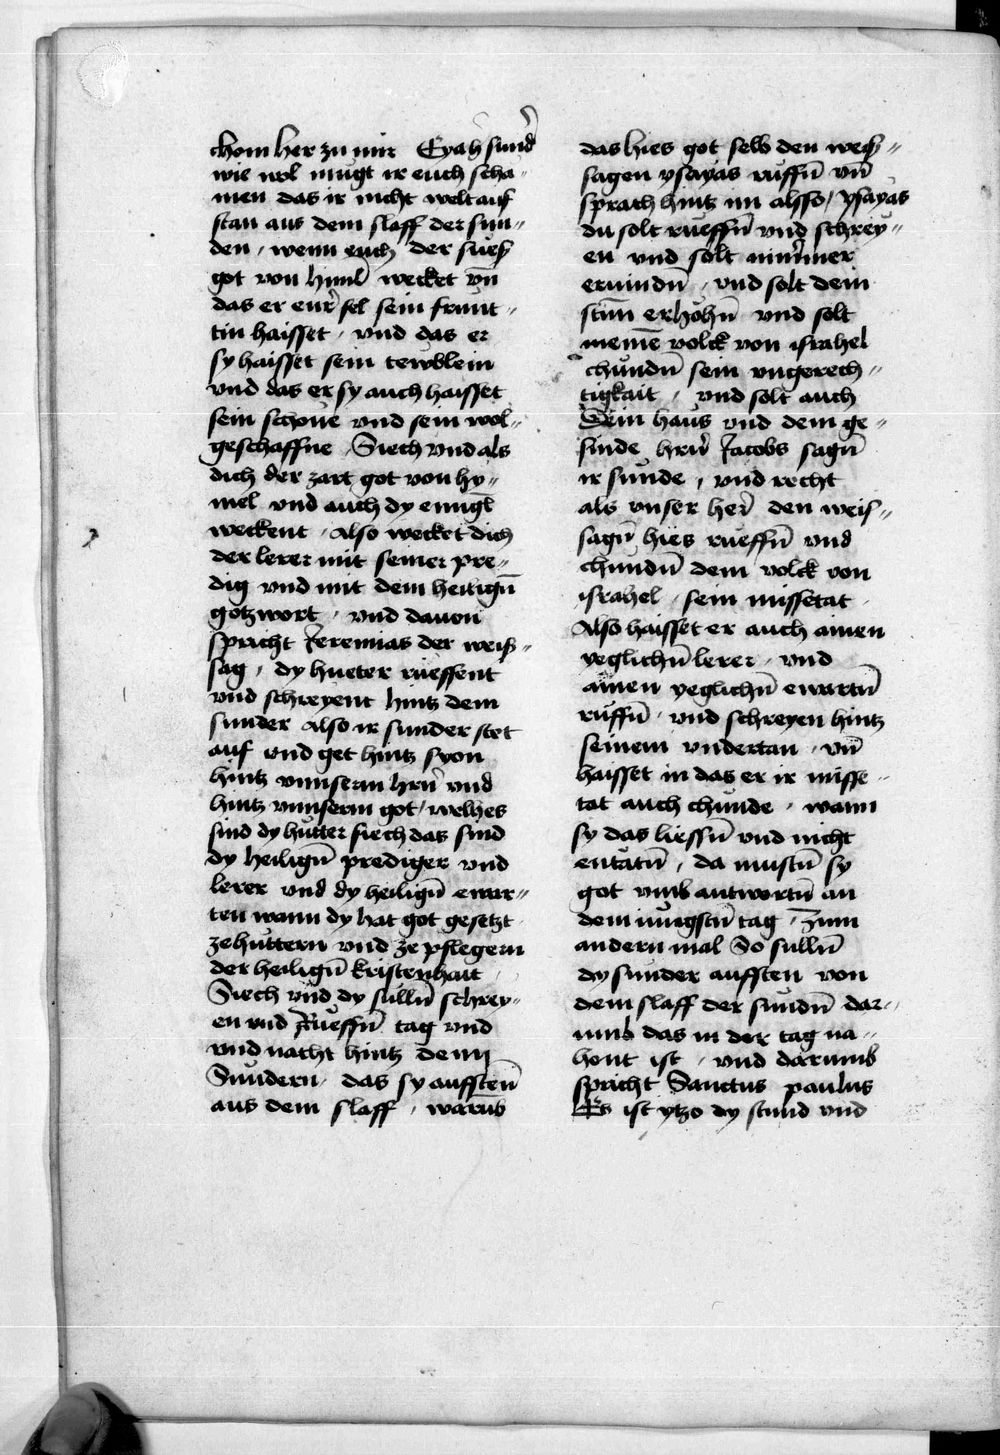 chom her zu mir Eyah sund̉
wie wol mugt ir euch scha-
men das ir nicht welt auf
stan aus dem slaff der sun-
den, wenn euch der suess
got von himl̄ wecket vn̄
das er eur̉ sel sein frunt-
tin haisset, vnd das er
sy haisset sein tewblein
vnd das er sy auch haisset
sein schone vnd sein wol-
geschaffne Siech vnd als
dich der zart got von hy-
mel vnd auch dy enngl̄
weckent, Also wecket dich
der lerer mit seiner pre-
dig vnd mit dem heiligūn
gotzwort, vnd dauon
spricht Jeremias der weiss-
sag, dy hueter rueffent
vnd schreyent hintz dem
sunder Also ir sunder stet
auf vnd get hintz syon
hintz vnnserm hrn̉ vnd
hintz vnnserm got, welhes
sind dy hutter siech das sind
dy heilign̄ prediger vnd
lerer vnd dy heilign̄ ewar-
ten wann dy hat got gesetzt
ze huttern vnd ze pflegern
der heilign̄ kristenhait,
Siech vnd dy sulln̄ schrey-
en vnd Rueffn̄ tag vnd
vnd nacht hintz denn
Sundern, das sy aufsten̄
aus dem slaff, warūb
das hies got selb den weiss-
sagen ysayas ruffn̄ vn̄
sprach hintz im alsso, ysayas
du solt rueffn̄ vnd schrey-
en vnd solt nim̄mer
erwindn̄, vnd solt dein
stim̄ erhohn̄ vnd solt
meinē volck von israhel
chundn̄ sein vngerech-
tigkait, vnd solt auch
Dein haus vnd dem ge-
sinde hrn̉ Jacobs sagn̄
ir sunde, vnd recht
als vnser her̉ den weis-
sagn̄ hies rueffn̄ vnd
chundn̄ dem volck von
israhel, sein missetat
Also haisset er auch ainen
yeglichn̄ lerer, vnd
ainen yeglichn̄ ewartn̄
ruffn̄, vnd schreyen hintz
seinem vndertan, vn̄
haisset in das er ir misse-
tat auch chunde, wann
sy das liessn̄ vnd nicht
entatn̄, da mustn̄ sy
got vmb antwortn̄ an
dem iungstn̄ tag, Zum
andern mal So sulln̄
dy sunder aufsten von
dem slaff der sundn̄ dar-
umb das in der tag na-
hent ist, vnd darumb
spricht Sanctus paulus
Es ist ytzo dy stund vnd